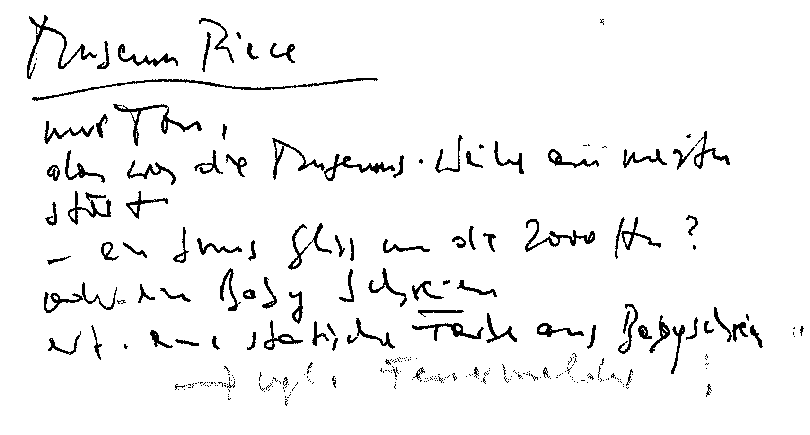 Museum Piece
nur Ton,
also was die Museums-Weihe am meisten
stört
- ein Sinus Gliss um die 2000 Hz?
oder ein Baby Schreien
evt. eine statische Farbe aus Babyschrei
→ vgl. Feuermelder !